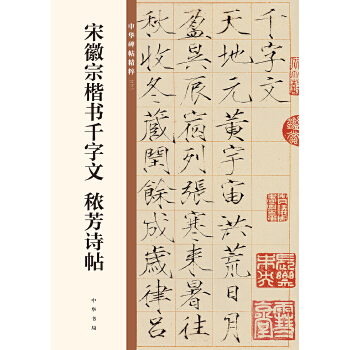 宋徽宗楷书千字文 秾芳诗帖
中华书局
中华碑帖精粹
千字文
天地元黃宇宙洪荒日月
盈昃辰宿列張寒來暑往
秋收冬藏閏餘成歲律吕